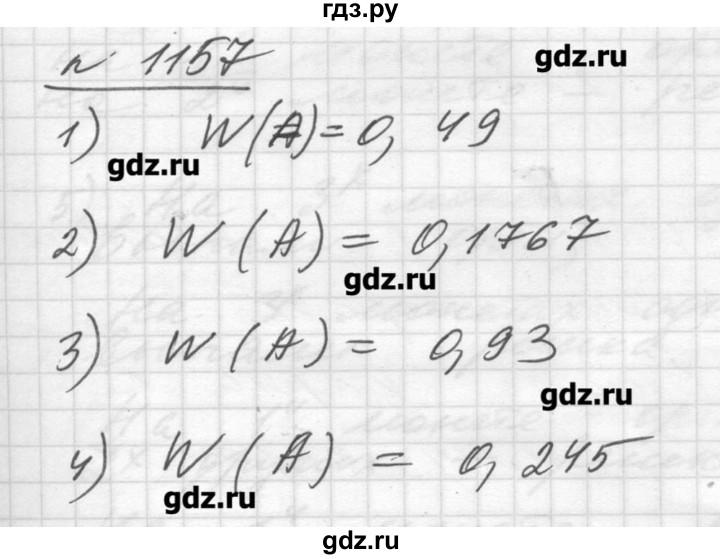 гдз.ру
n 1157
gdz.ru
1) W(A)=0,49
gdz.ru
2) W(A)=0,1767
gdz.ru
3) W(A)=0,93
gdz.ru
4) W(A)=0,245
gdz.ru
gdz.ru